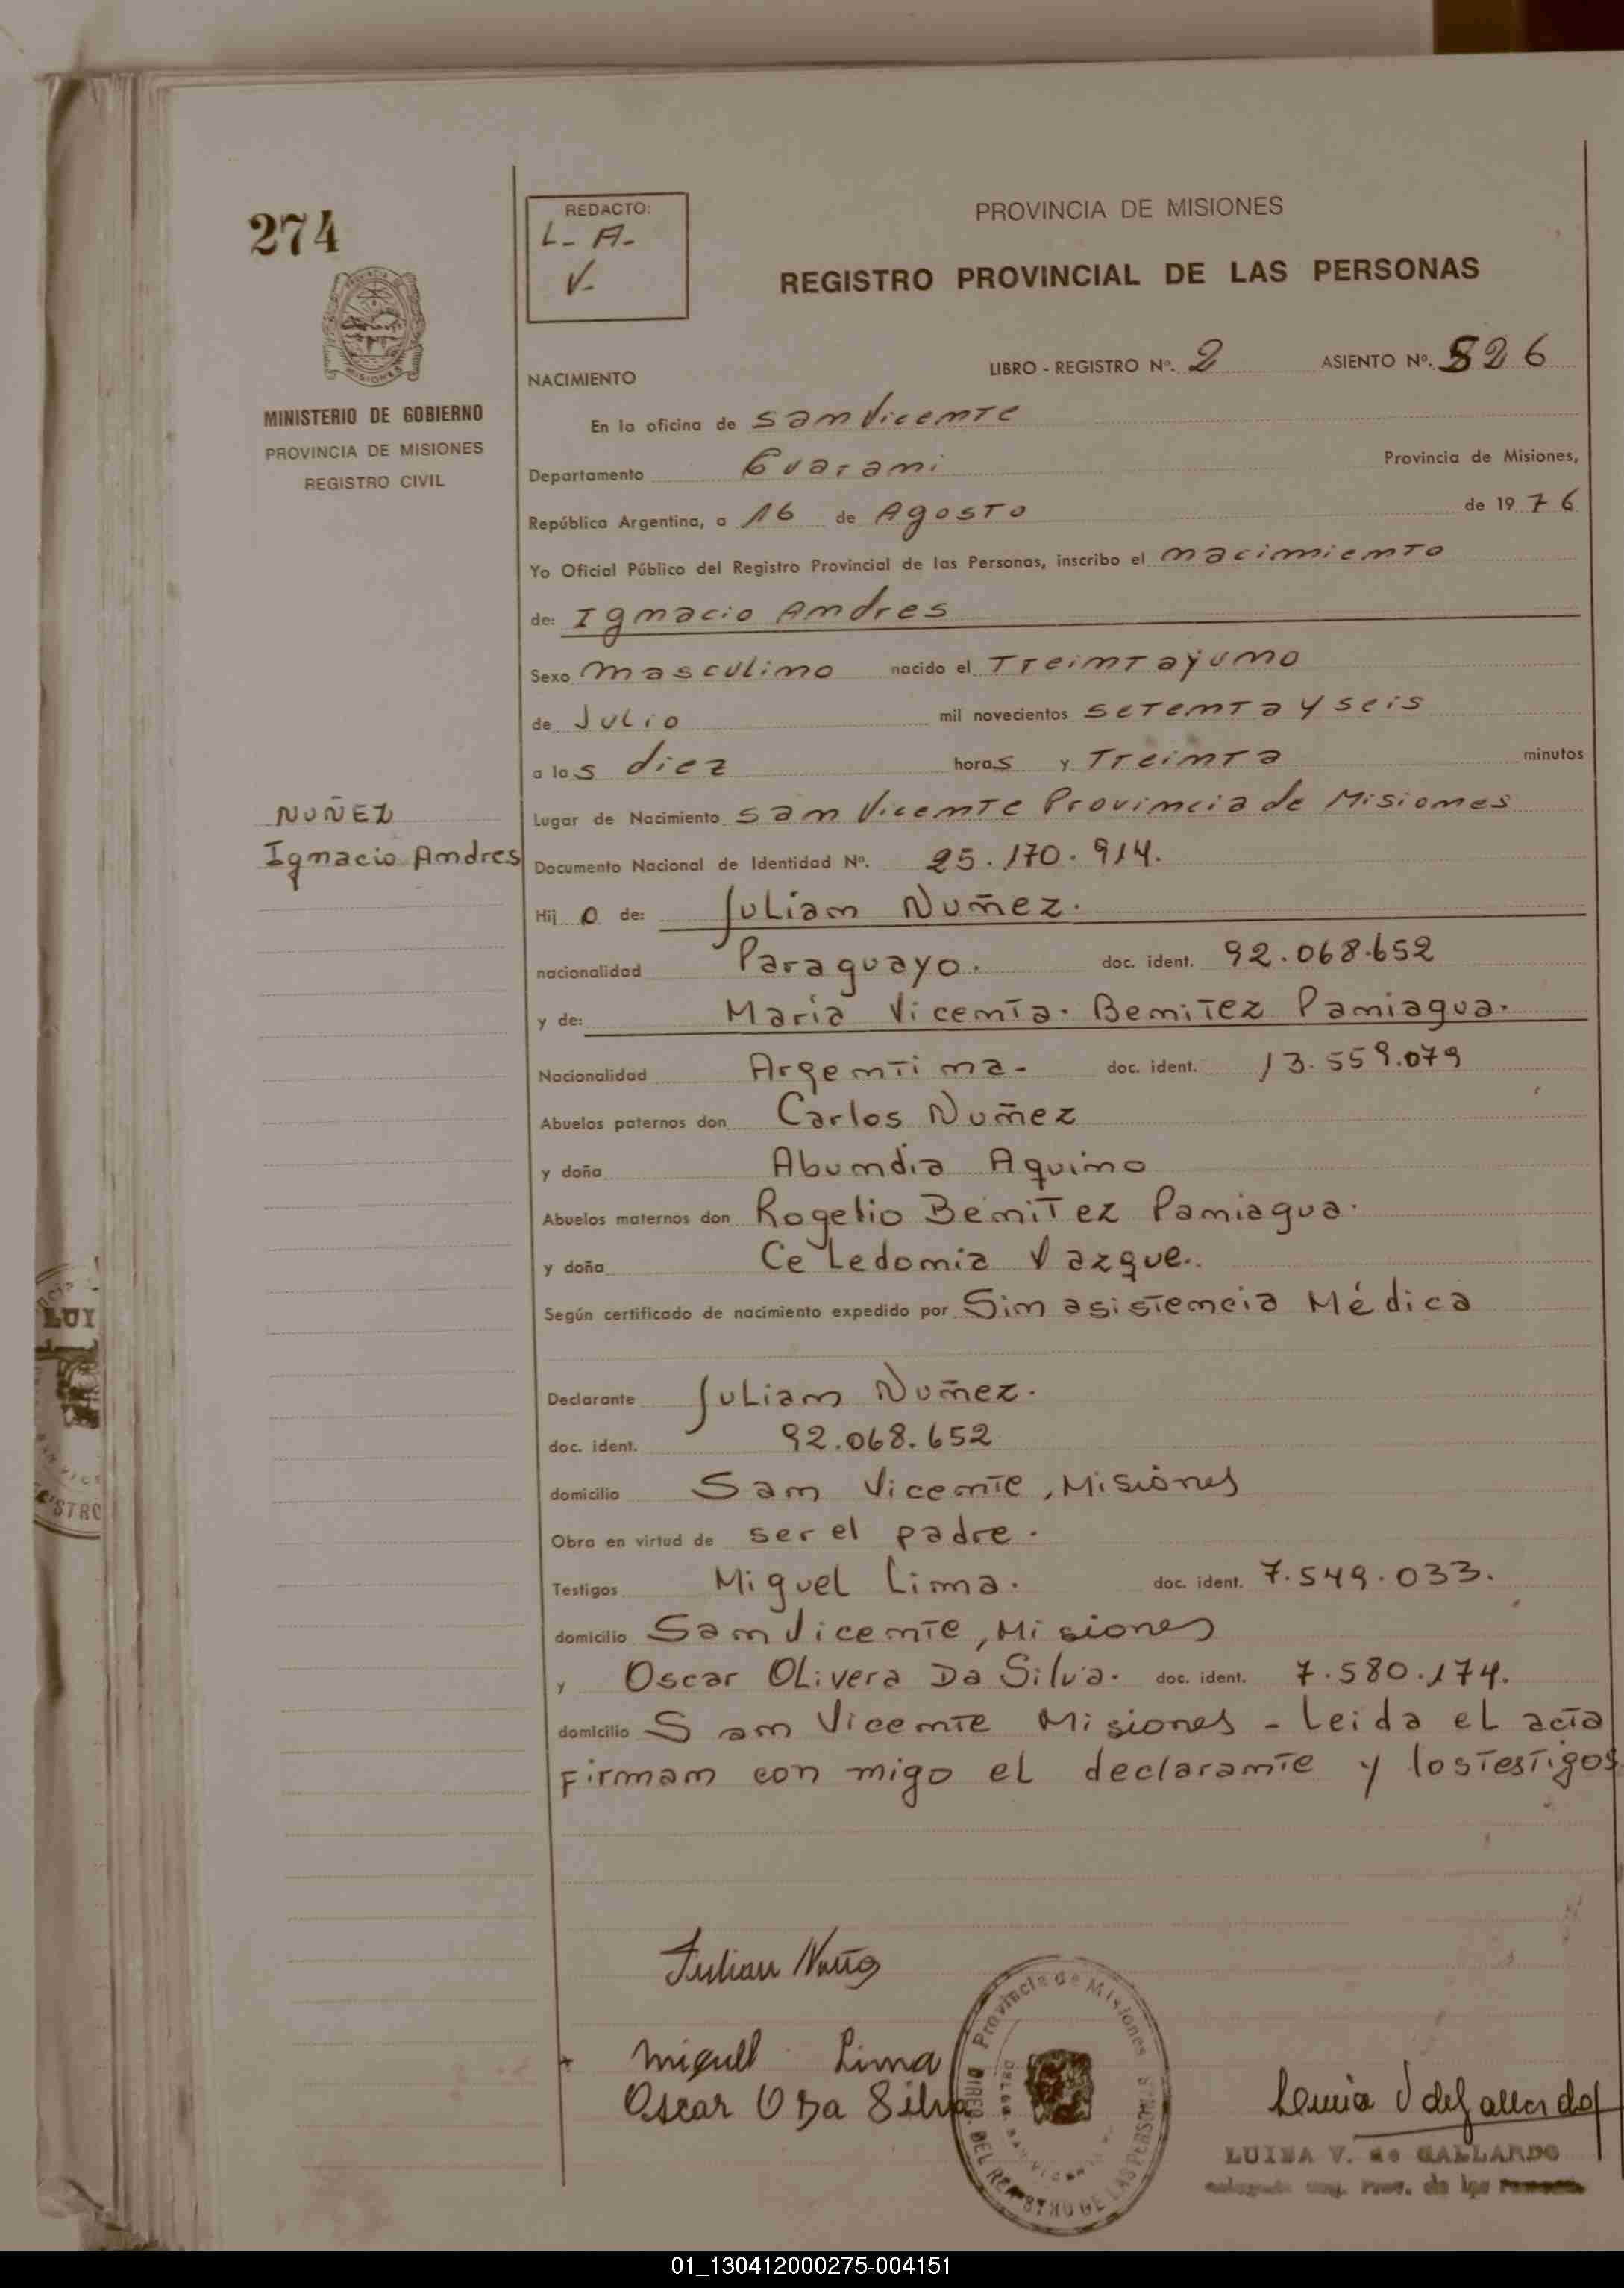 274
REDACTO:
L- A-
V-
PROVINCIA DE MISIONES
REGISTRO PROVINCIAL DE LAS PERSONAS
MINISTERIO DE GOBIERNO
PROVINCIA DE MISIONES
REGISTRO CIVIL
NACIMIENTO
LIBRO - REGISTRO Nº. 2 ASIENTO Nº. 826
En la oficina de San Vicente
Departamento Guarani Provincia de Misiones,
República Argentina, a 16 de Agosto de 1976
Yo Oficial Público del Registro Provincial de las Personas, inscribo el nacimiento
de: Ignacio Andres
Sexo masculino nacido el Treinta y uno
de Julio mil novecientos setenta y seis
a las diez horas y Treinta minutos
Lugar de Nacimiento San Vicente Provincia de Misiones
NUÑEZ
Ignacio Andres
Documento Nacional de Identidad Nº. 25.170.914.
Hijo de: Julian Nuñez.
nacionalidad Paraguayo. doc. ident. 92.068.652
y de: María Vicenta. Benitez Paniagua.
Nacionalidad Argentina- doc. ident. 13.559.079
Abuelos paternos don Carlos Nuñez
y doña Abundia Aquino
Abuelos maternos don Rogelio Benitez Paniagua.
y doña Celedonia Vazque..
Según certificado de nacimiento expedido por Sin asistencia Médica
Declarante Julian Nuñez.
doc. ident. 92.068.652
domicilio San Vicente, Misiones
Obra en virtud de ser el padre.
Testigos Miguel Lima. doc. ident. 7.549.033.
domicilio San Vicente, Misiones
y Oscar Olivera Da Silva. doc. ident. 7.580.174.
domicilio San Vicente Misiones - Leida el acta
Firman con migo el declarante y los testigos
Julian Nuñez
Miguel Lima
Oscar O Da Silva
Provincia de Misiones
DIREC. DEL REGISTRO DE LAS PERSONAS
LUISA V. de GALLARDO
LUI
STRO
01_130412000275-004151